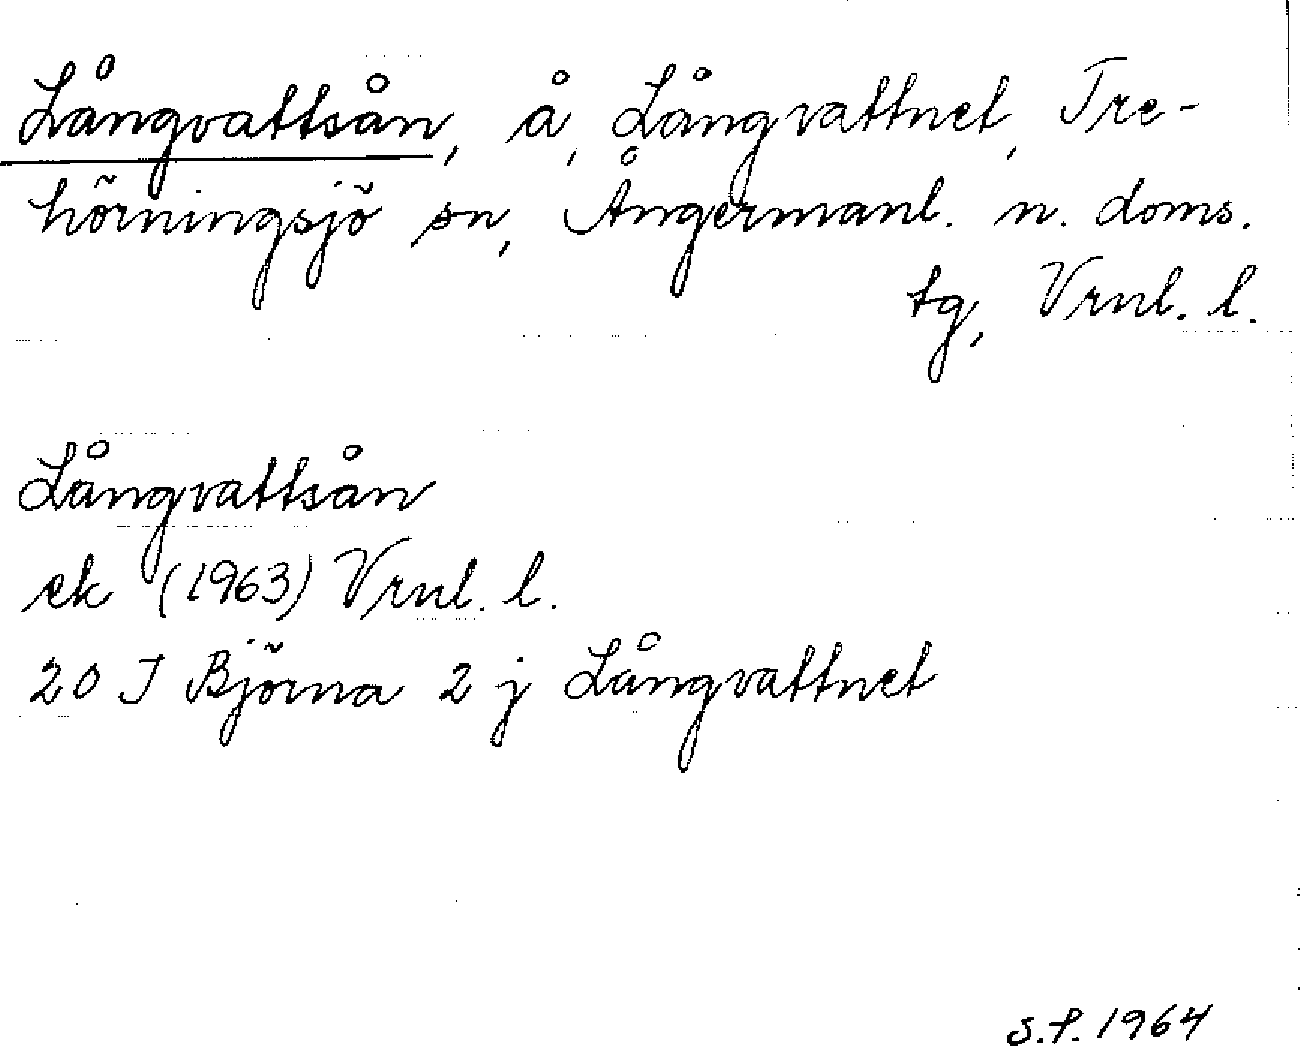 Långvattsån, å, Långvattnet, Tre-
hörningsjö sn, Ångermanl. n. doms.
tg, Vrnl. l.
Långvattsån
ek (1963) Vrnl. l.
20 I Björna 2 j Långvattnet
S.P. 1964